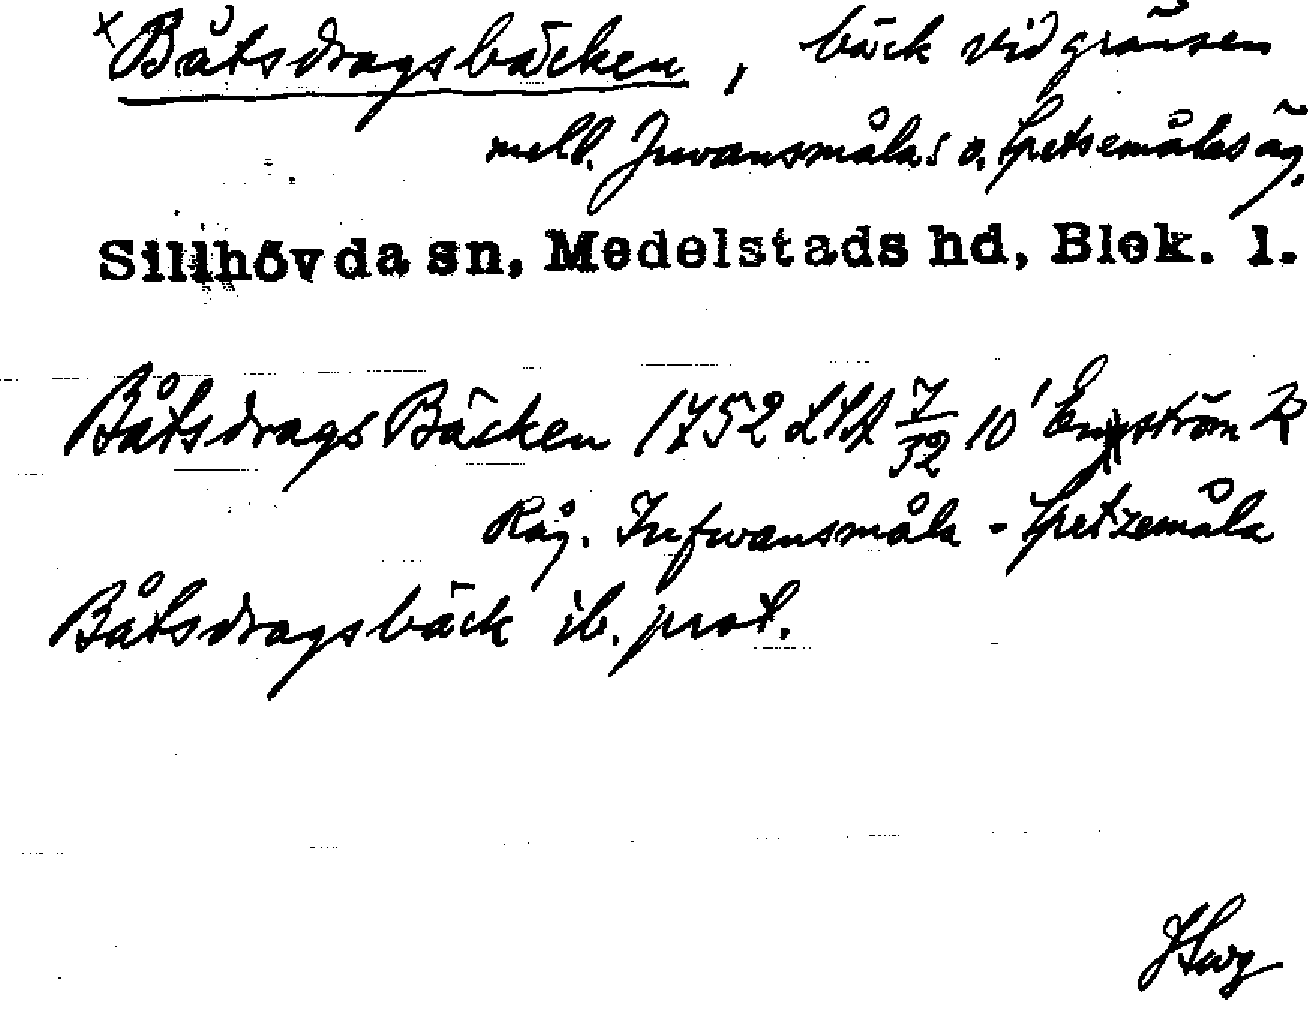 x Båtsdragsbäcken, bäck vid gränsen
mell. Juvansmålas o. Spetsemålas äg.
Sillhövda sn, Medelstads hd, Blek. l.
BåtsdragsBäcken 1752 LSA 7/32 10' Engström R
Råg. Iufwansmåla - Spetzemåla
Båtsdragsbäck ib. prot.